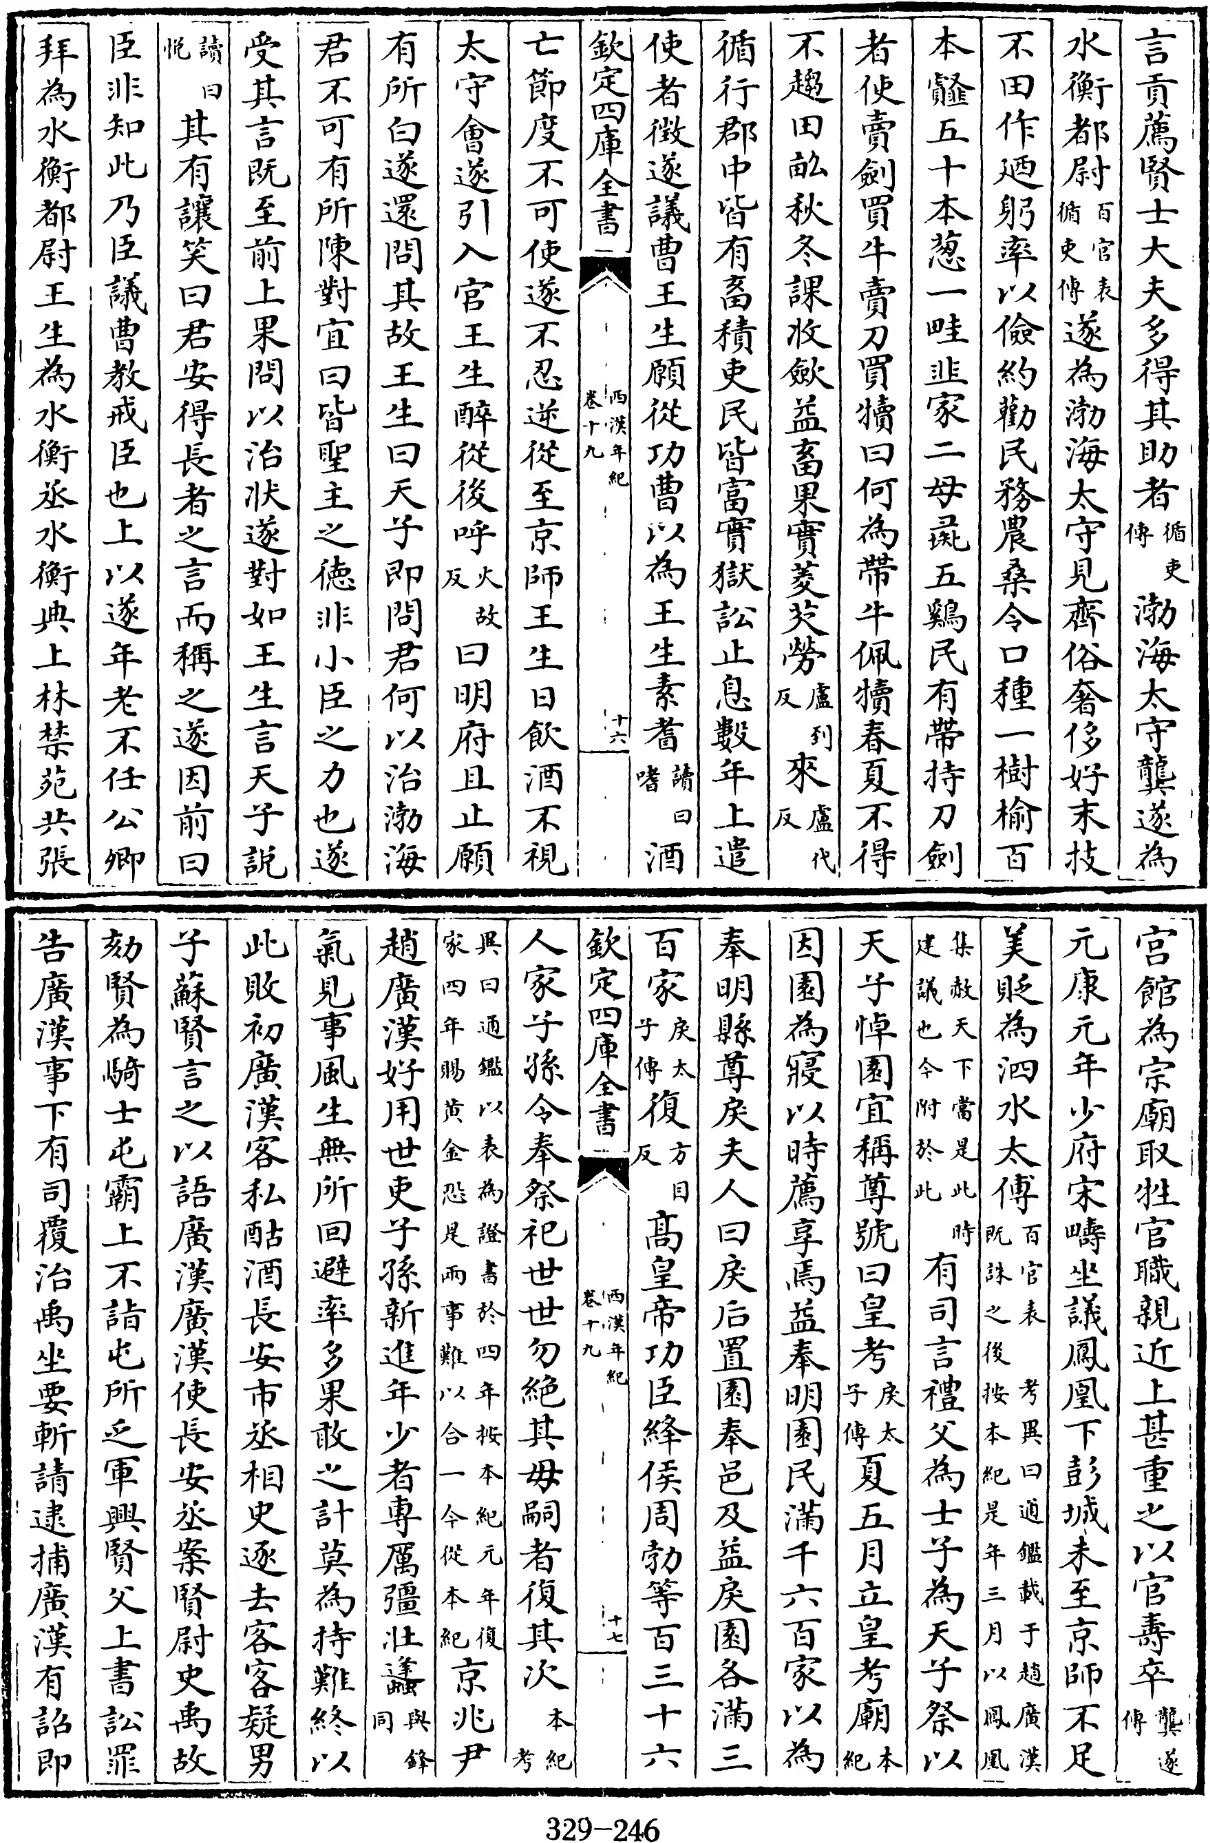 言貢薦賢士大夫多得其助者循吏傳 渤海太守龔遂為
水衡都尉百官表循吏傳遂為渤海太守見齊俗奢侈好末技
不田作廼躬率以儉約勸民務農桑令口種一樹榆百
本䪥五十本蔥一畦韭家二母彘五鷄民有帶持刀劍
者使賣劍買牛賣刀買犢曰何為帶牛佩犢春夏不得
不趨田畝秋冬課收歛益畜果實菱芡勞盧到反來盧代反
循行郡中皆有畜積吏民皆富實獄訟止息數年上遣
使者徵遂議曹王生願從功曹以為王生素耆讀曰嗜酒
欽定四庫全書 西漢年紀卷十九 十六
亡節度不可使遂不忍逆從至京師王生日飲酒不視
太守會遂引入宫王生醉從後呼火故反曰明府且止願
有所白遂還問其故王生曰天子即問君何以治渤海
君不可有所陳對宜曰皆聖主之徳非小臣之力也遂
受其言既至前上果問以治狀遂對如王生言天子説
讀曰悅其有讓笑曰君安得長者之言而稱之遂因前曰
臣非知此乃臣議曹教戒臣也上以遂年老不任公卿
拜為水衡都尉王生為水衡丞水衡典上林禁苑共張
宫館為宗廟取牲官職親近上甚重之以官壽卒龔遂傳
元康元年少府宋疇坐議鳳凰下彭城未至京師不足
美貶為泗水太傅百官表 考異曰通鑑載于趙廣漢既誅之後按本紀是年三月以鳳凰
集赦天下當是此時建議也今附於此 有司言禮父為士子為天子祭以
天子悼園宜稱尊號曰皇考戾太子傳夏五月立皇考廟本紀
因園為寢以時薦享焉益奉明園民滿千六百家以為
奉明縣尊戾夫人曰戾后置園奉邑及益戾園各滿三
百家戾太子傳復方目反高皇帝功臣絳侯周勃等百三十六
欽定四庫全書 西漢年紀卷十九 十七
人家子孫令奉祭祀世世勿絶其毋嗣者復其次本紀 考
異曰通鑑以表為證書於四年按本紀元年復家四年賜黄金恐是兩事難以合一今從本紀京兆尹
趙廣漢好用世吏子孫新進年少者專厲彊壯蠭與鋒同
氣見事風生無所回避率多果敢之計莫為持難終以
此敗初廣漢客私酤酒長安市丞相史逐去客客疑男
子蘇賢言之以語廣漢廣漢使長安丞案賢尉史禹故
劾賢為騎士屯霸上不詣屯所乏軍興賢父上書訟罪
告廣漢事下有司覆治禹坐要斬請逮捕廣漢有詔即
329-246